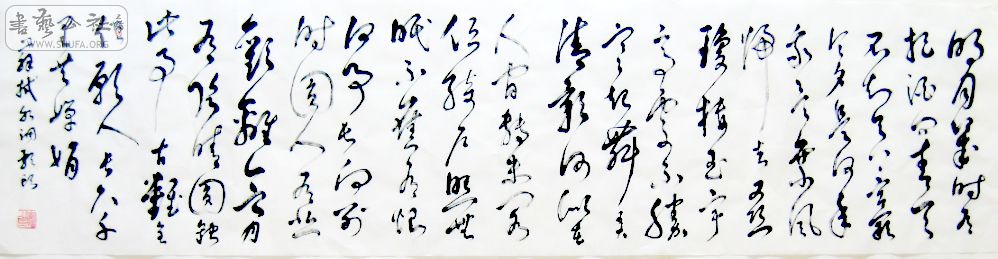 書藝公社
WWW.SHUFA.ORG
明月幾時有
把酒問青天
不知天上宮闕
今夕是何年
我欲乘風
歸去又恐
瓊樓玉宇
高處不勝
寒起舞弄
清影何似在
人間轉朱閣
低綺戶照無
眠不應有恨
何事長向別
時圓人有悲
歡離合月
有陰晴圓缺
此事古難全
但願人長久千
里共嬋娟
蘇軾水調歌頭